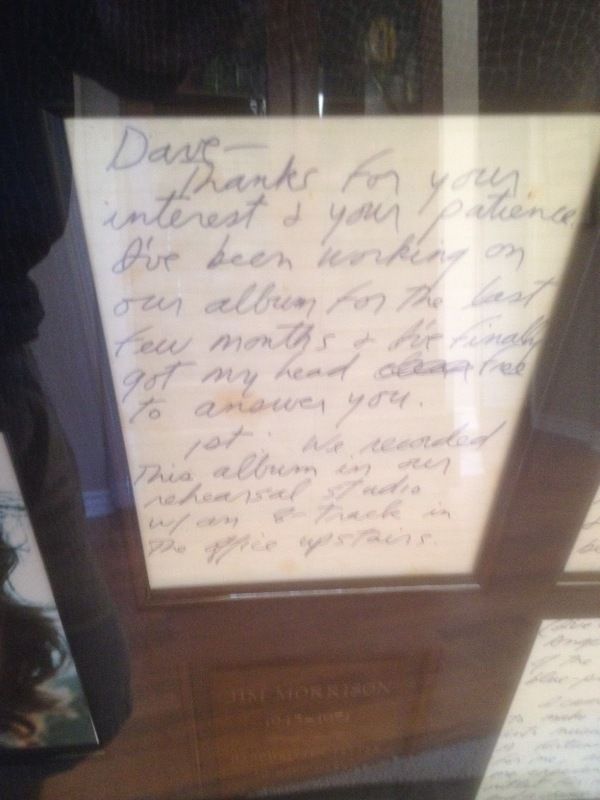 Dave—
Thanks for your
interest & your patience
I've been working on
our album for the last
few months & I've finally
got my head clear free
to answer you.
1st: We recorded
This album in our
rehearsal studio
w/ an 8-Track in
The office upstairs.
JIM MORRISON
1943-1971
of the
blue-
to make
for me,